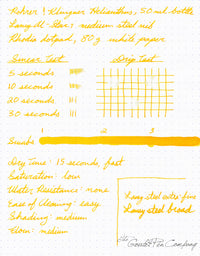 Rohrer & Klingner Helianthus, 50 ml bottle
Lamy Al-Star: medium steel nib
Rhodia dotpad, 80 g white paper
Smear Test
Drip Test
5 seconds
10 seconds
20 seconds
30 seconds
Swabs
1
2
3
Dry Time: 15 seconds, fast
Saturation: low
Water Resistance: none
Ease of Cleaning: easy
Shading: medium
Flow: medium
Lamy steel extra-fine
Lamy steel broad
the Goulet Pen Company